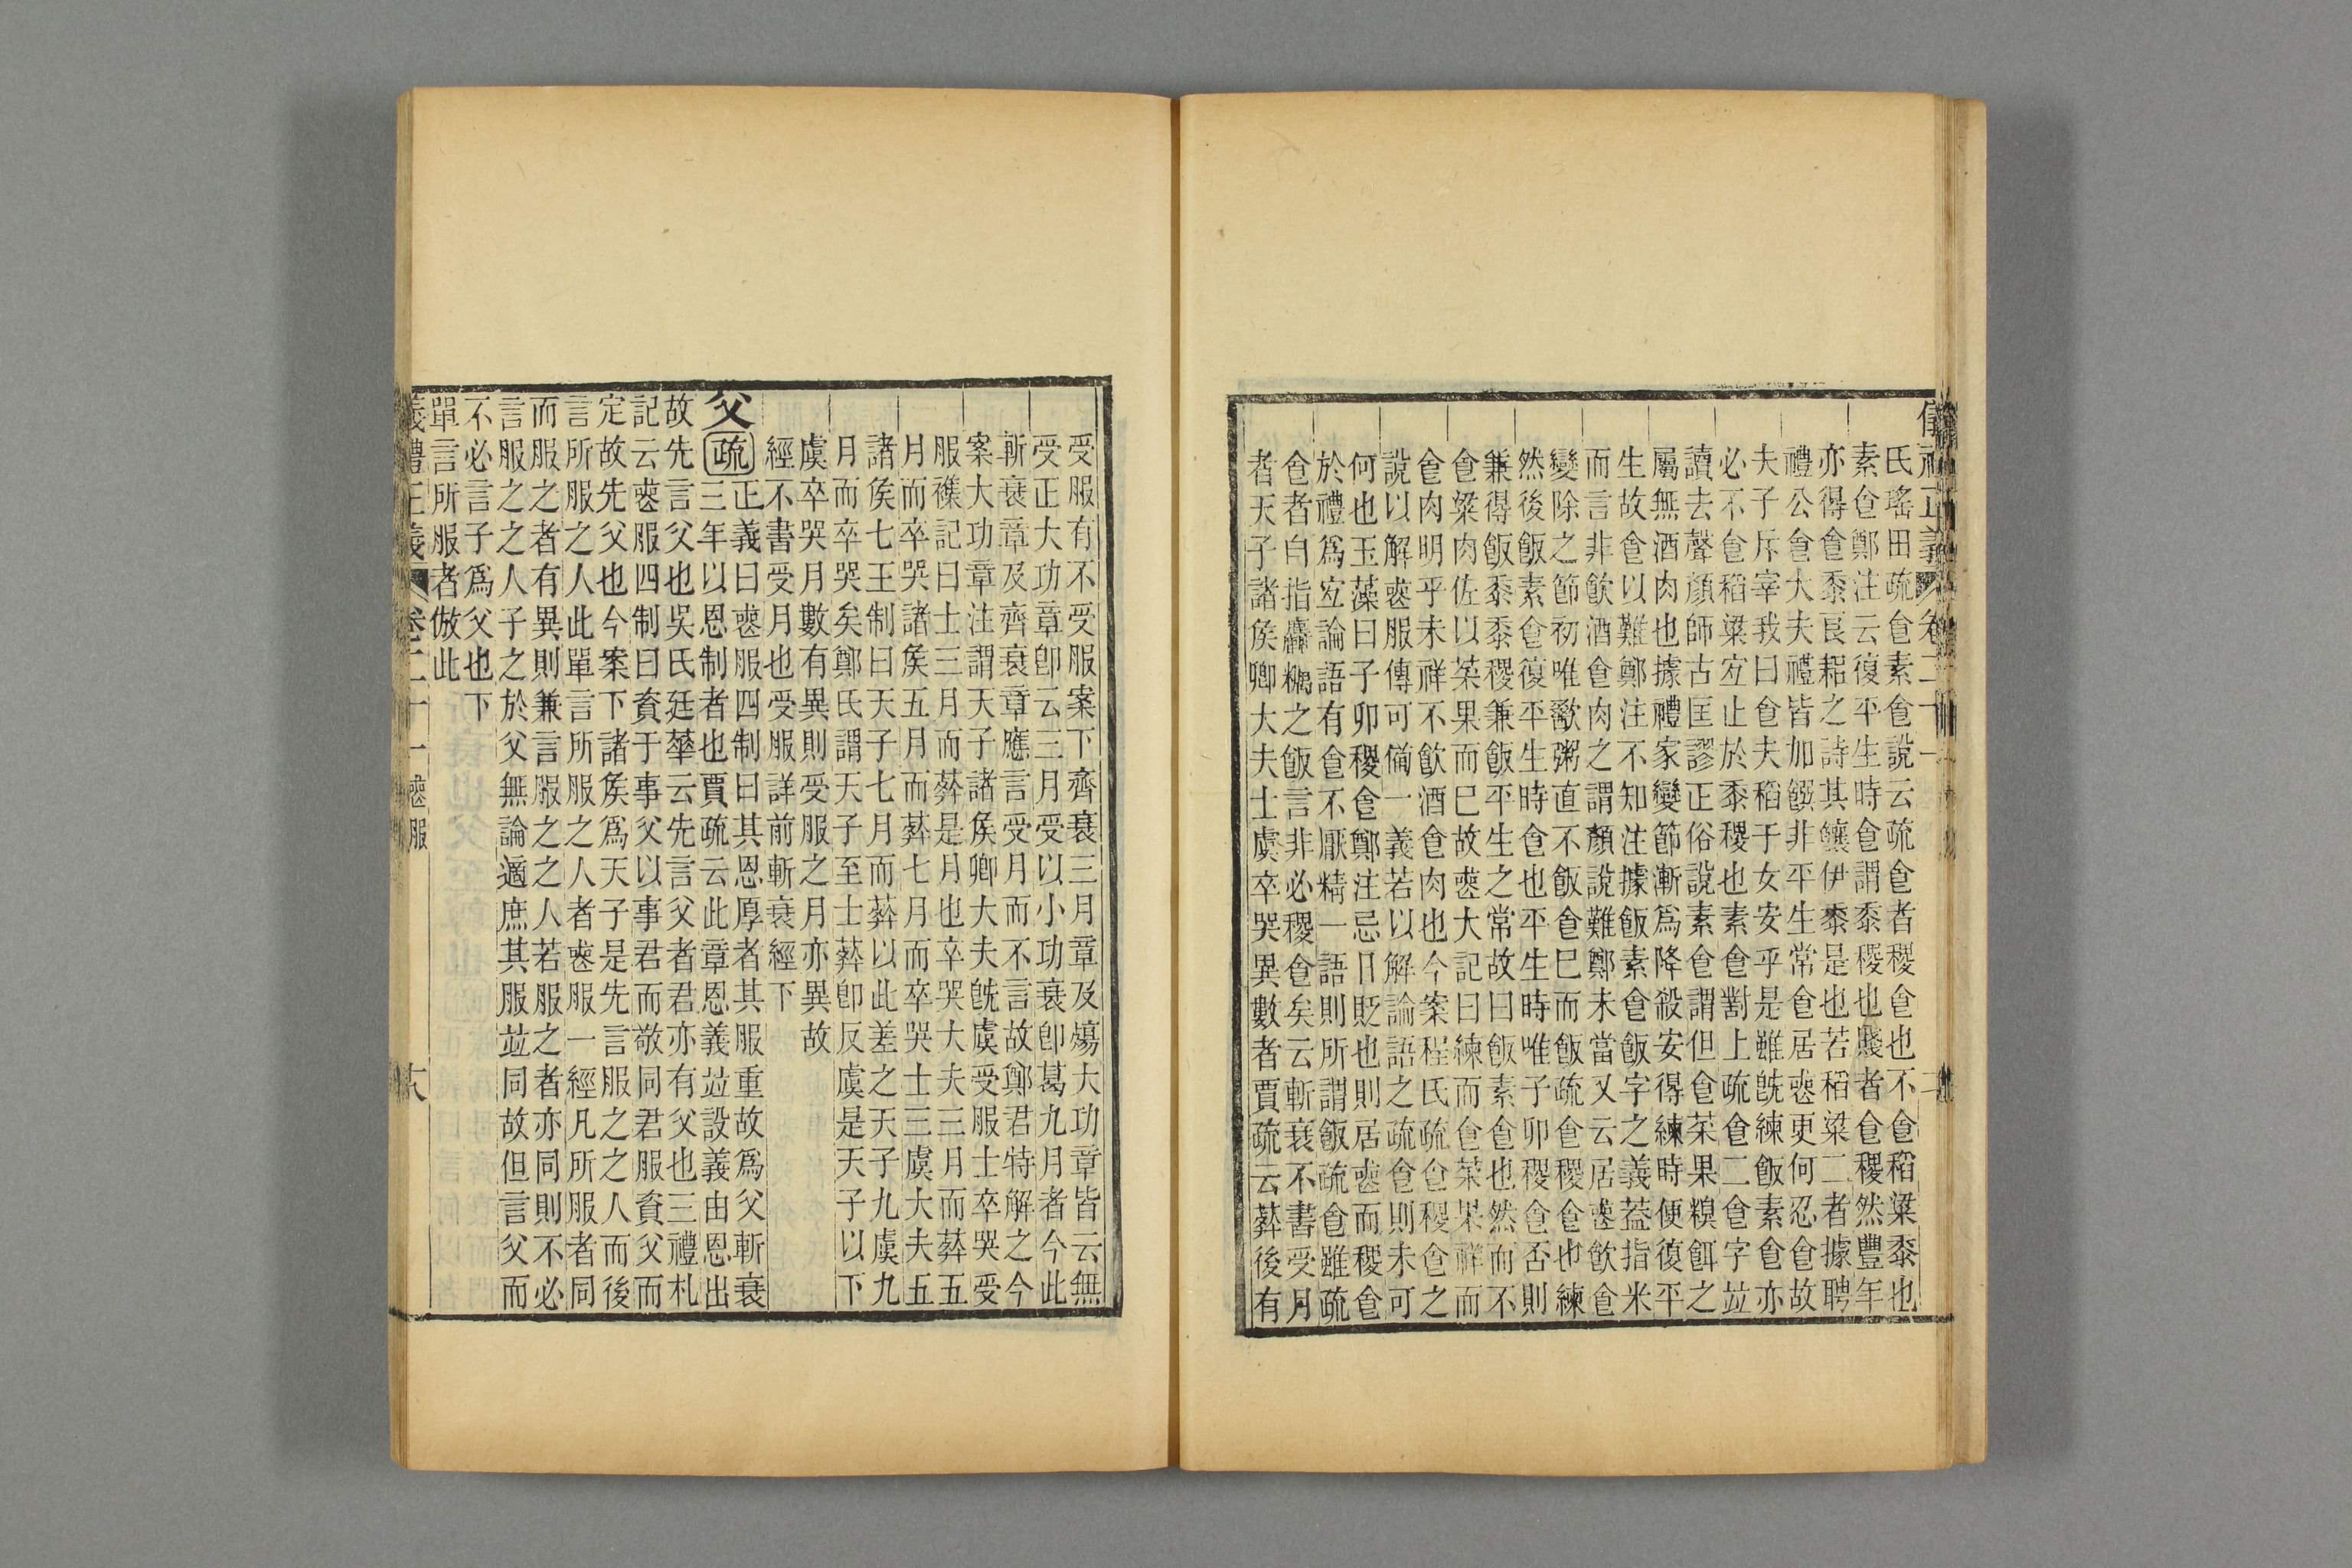 儀禮正義 卷二十一
氏瑤田疏食素食說云疏食者稷食也不食稻粱黍也
素食鄭注云復平生時食謂黍稷也賤者食稷然豐年
亦得食黍良耜之詩其饟伊黍是也若稻粱二者據聘
禮公食大夫禮皆加饌非平生常食居喪更何忍食故
夫子斥宰我曰食夫稻于女安乎是雖旣練飯素食亦
必不食稻粱宐止於黍稷也素食對上疏食二食字竝
讀去聲顏師古匡謬正俗說素食謂但食菜果糗餌之
屬無酒肉也據禮家變節漸爲降殺安得練時便復平
生故食以難鄭注不知注據飯素食飯字之義葢指米
而言非飲酒食肉之謂顏說難鄭未當又云居喪飲食
變除之節初唯歠粥直不飯食巳而飯疏食稷食也練
然後飯素食復平生時食也平生時唯子卯稷食否則
兼得飯黍黍稷兼飯平生之常故曰飯素食也然而不
食粱肉佐以菜果而巳故喪大記曰練而食菜果祥而
食肉明乎未祥不飲酒食肉也今案程氏疏食稷食之
說以解喪服傳可備一義若以解論語之疏食則未可
何也玉藻曰子卯稷食鄭注忌日貶也則居喪而稷食
於禮爲宐論語有食不厭精一語則所謂飯疏食雖疏
食者白指麤糲之飯言非必稷食矣云斬衰不書受月
者天子諸侯卿大夫士虞卒哭異數者賈疏云葬後有
受服有不受服案下齊衰三月章及殤大功章皆云無
受正大功章卽云三月受以小功衰卽葛九月者今此
斬衰章及齊衰章應言受月而不言故鄭君特解之今
案大功章注謂天子諸侯卿大夫旣虞受服士卒哭受
服襍記曰士三月而葬是月也卒哭大夫三月而葬五
月而卒哭諸侯五月而葬七月而卒哭士三虞大夫五
諸侯七王制曰天子七月而葬以此差之天子九虞九
月而卒哭矣鄭氏謂天子至士葬卽反虞是天子以下
虞卒哭月數有異則受服之月亦異故
經不書受月也受服詳前斬衰經下
父 疏 正義曰喪服四制曰其恩厚者其服重故爲父斬衰
三年以恩制者也賈疏云此章恩義竝設義由恩出
故先言父也吳氏廷華云先言父者君亦有父也三禮札
記云喪服四制曰資于事父以事君而敬同君服資父而
定故先父也今案下諸侯爲天子是先言服之之人而後
言所服之人此單言所服之人者喪服一經凡所服者同
而服之者有異則兼言服之之人若服之者亦同則不必
言服之之人子之於父無論適庶其服竝同故但言父而
不必言子爲父也下
單言所服者倣此
義禮正義 卷二十一 喪服 十八